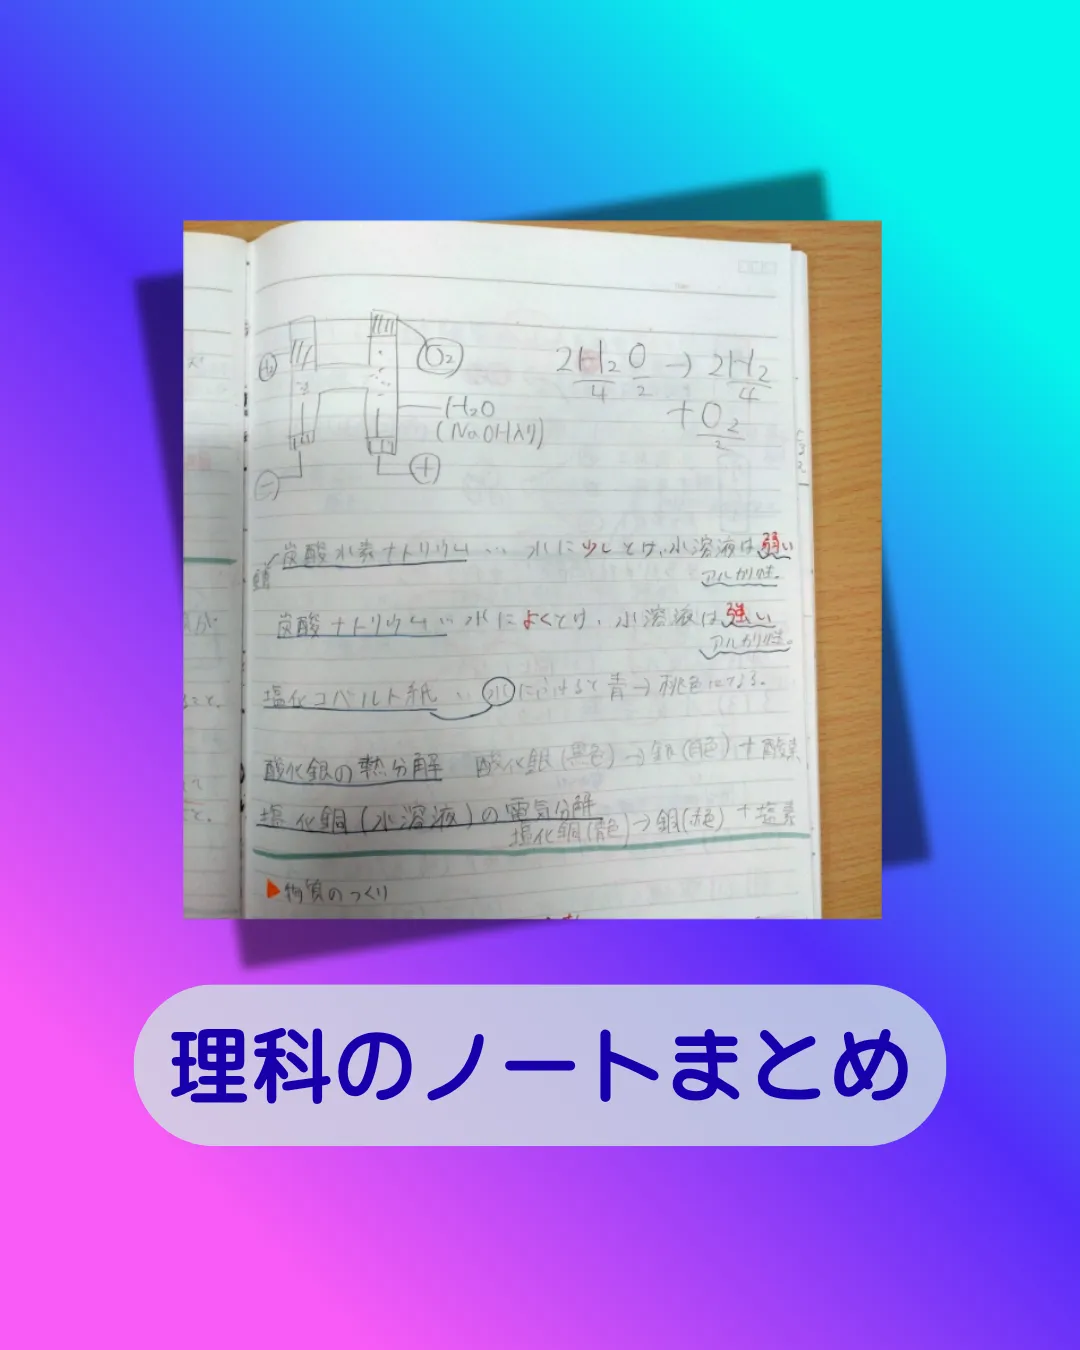 H₂
O₂
H₂O
(NaOH入り)
−
+
2H₂O → 2H₂
4 2 4
+ O₂
2
炭酸水素ナトリウム … 水に少しとけ、水溶液は弱い
アルカリ性。
炭酸ナトリウム … 水によくとけ、水溶液は強い
アルカリ性。
塩化コバルト紙 … 水につけると青→桃色になる。
酸化銀の熱分解 酸化銀(黒色)→銀(白色)+酸素
塩化銅(水溶液)の電気分解
塩化銅(青色)→銅(赤色)+塩素
物質のつくり
理科のノートまとめ